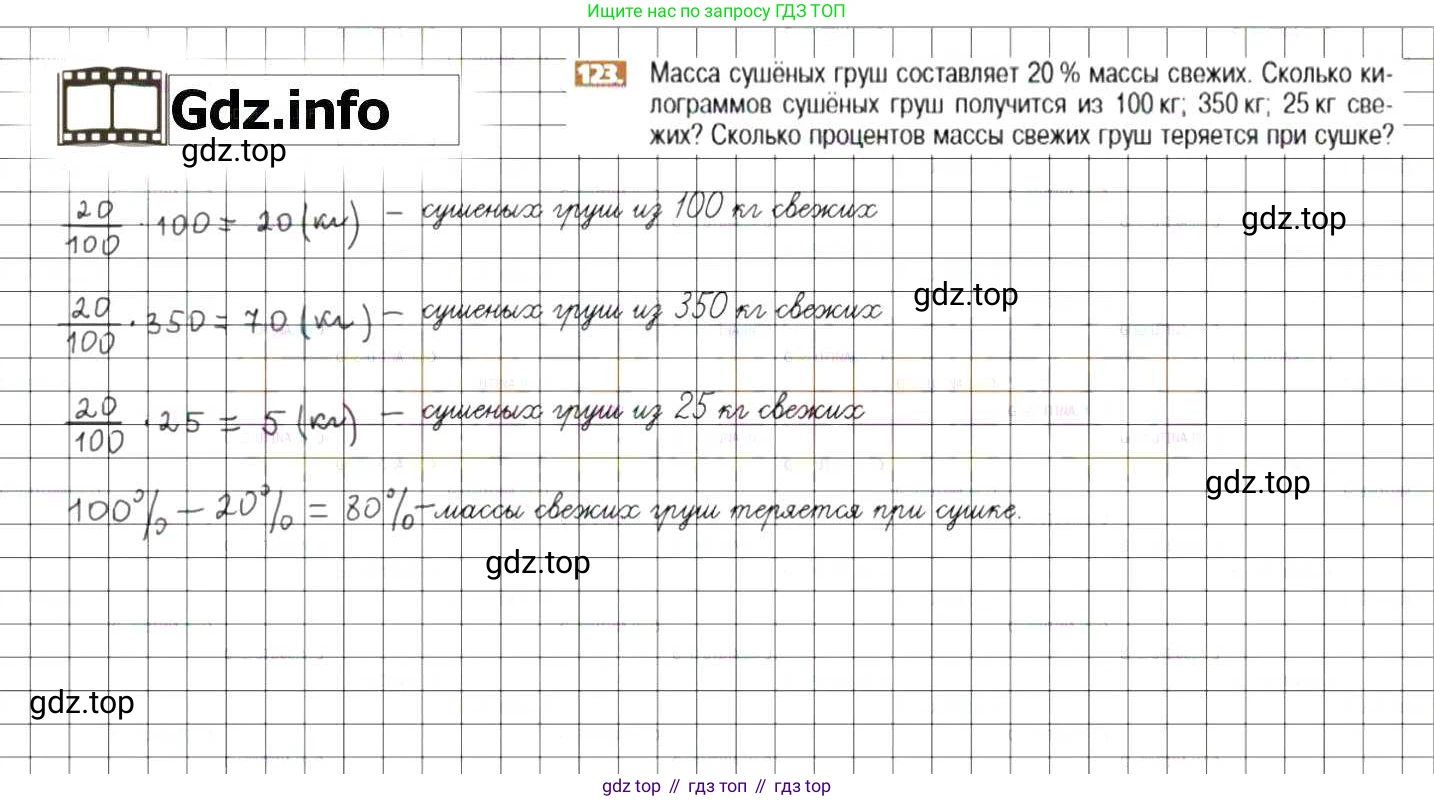 Ищите нас по запросу ГДЗ ТОП
Gdz.info
gdz.top
123. Масса сушёных груш составляет 20 % массы свежих. Сколько ки-
лограммов сушёных груш получится из 100 кг; 350 кг; 25 кг све-
жих? Сколько процентов массы свежих груш теряется при сушке?
20/100 · 100 = 20 (кг) – сушеных груш из 100 кг свежих
gdz.top
20/100 · 350 = 70 (кг) – сушеных груш из 350 кг свежих
gdz.top
20/100 · 25 = 5 (кг) – сушеных груш из 25 кг свежих
gdz.top
100% – 20% = 80% – массы свежих груш теряется при сушке.
gdz.top
gdz.top
gdz top // гдз топ // гдз top